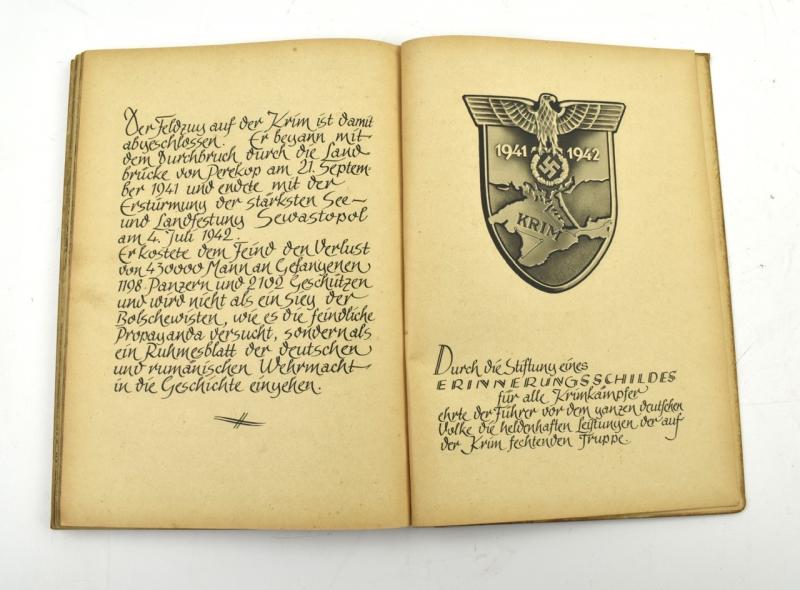 Der Feldzug auf der Krim ist damit
abgeschlossen. Er begann mit
dem Durchbruch durch die Land
brücke von Perekop am 21. Septem-
ber 1941 und endete mit der
Erstürmung der stärksten See-
und Landfestung Sewastopol
am 4. Juli 1942.
Er kostete dem Feind den Verlust
von 430000 Mann an Gefangenen
1198 Panzern und 2102 Geschützen
und wird nicht als ein Sieg der
Bolschewisten, wie es die feindliche
Propaganda versucht, sondern als
ein Ruhmesblatt der deutschen
und rumänischen Wehrmacht
in die Geschichte eingehen.
1941 1942
KRIM
Durch die Stiftung eines
ERINNERUNGSSCHILDES
für alle Krimkämpfer
ehrte der Führer vor dem ganzen deutschen
Volke die heldenhaften Leistungen der auf
der Krim fechtenden Truppe.